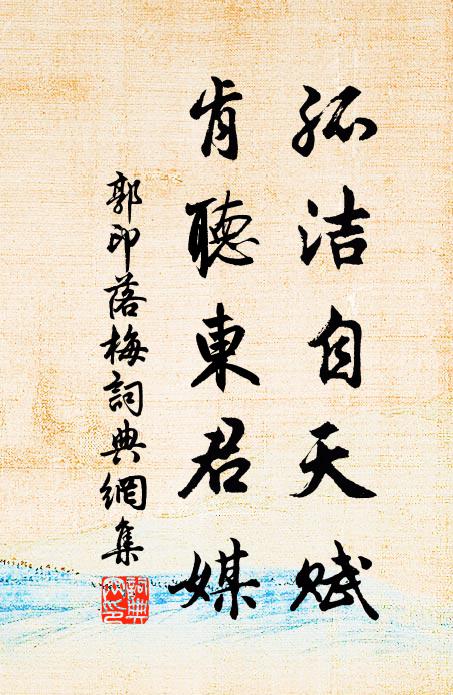 孤洁自天赋
肯聽東君媒
郭印落梅詞典網集